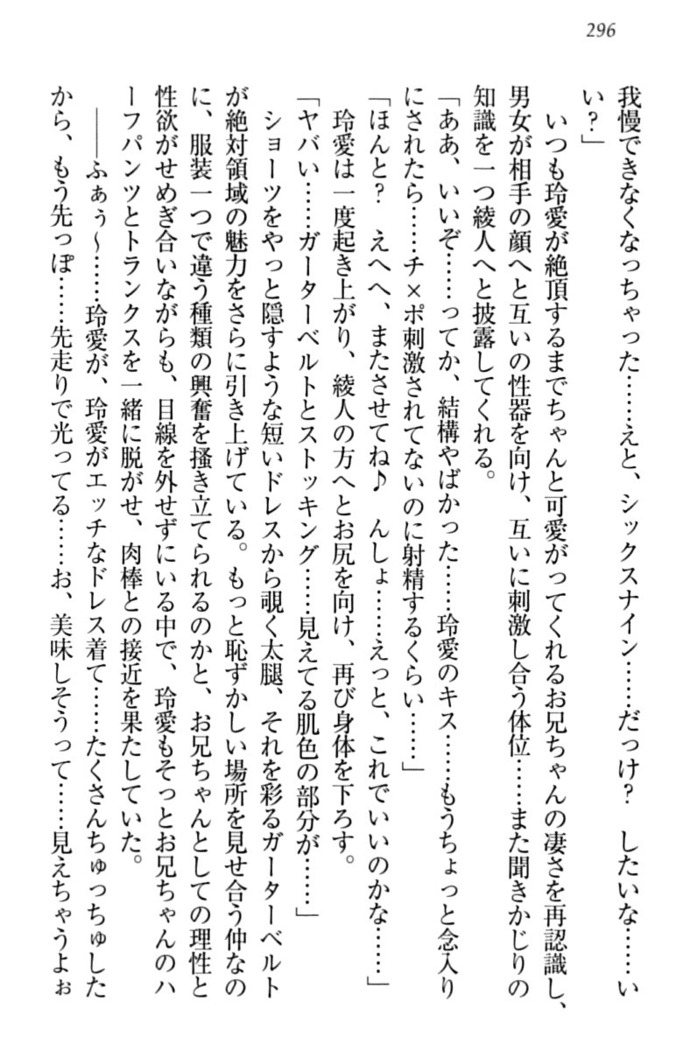 296
我慢できなくなっちゃった……えと、シックスナイン……だっけ？　したいな……い
い？」
　いつも玲愛が絶頂するまでちゃんと可愛がってくれるお兄ちゃんの凄さを再認識し、
男女が相手の顔へと互いの性器を向け、互いに刺激し合う体位……また聞きかじりの
知識を一つ綾人へと披露してくれる。
「ああ、いいぞ……ってか、結構やばかった……玲愛のキス……もうちょっと念入り
にされたら……チ×ポ刺激されてないのに射精するくらい……」
「ほんと？　えへへ、またさせてね♪　んしょ……えっと、これでいいのかな……」
　玲愛は一度起き上がり、綾人の方へとお尻を向け、再び身体を下ろす。
「ヤバい……ガーターベルトとストッキング……見えてる肌色の部分が……」
　ショーツをやっと隠すような短いドレスから覗く太腿、それを彩るガーターベルト
が絶対領域の魅力をさらに引き上げている。もっと恥ずかしい場所を見せ合う仲なの
に、服装一つで違う種類の興奮を掻き立てられるのかと、お兄ちゃんとしての理性と
性欲がせめぎ合いながらも、目線を外せずにいる中で、玲愛もそっとお兄ちゃんのハ
ーフパンツとトランクスを一緒に脱がせ、肉棒との接近を果たしていた。
　――ふぁぅ～……玲愛が、玲愛がエッチなドレス着て……たくさんちゅっちゅした
から、もう先っぽ……先走りで光ってる……お、美味しそうって……見えちゃうよぉ